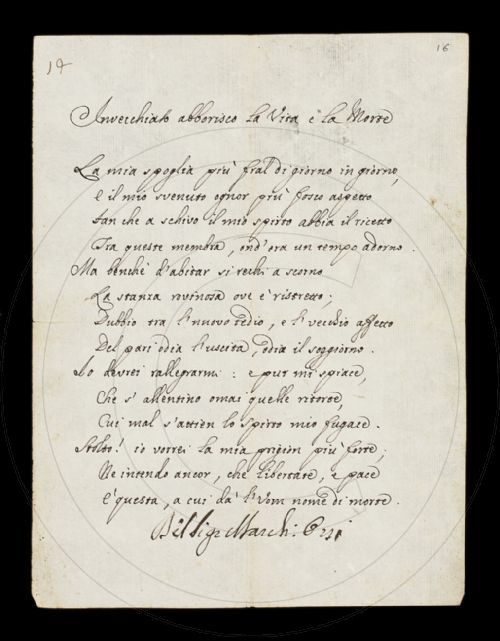 19
16
Invecchiato abborisco la Vita e la Morte
La mia spoglia più fral' di giorno in giorno,
E il mio svenuto ognor più fosco aspetto
Fan che a schivo il mio spirto abbia il ricetto
Tra queste membra, ond'era un tempo adorno.
Ma benchè d'abitar si rechi a scorno
La stanza rovinosa ove è ristretto;
Dubbio tra l'nuovo tedio, e l'vecchio affetto
Del pari odia l'uscita, odia il soggiorno.
Io devrei rallegrarmi: e pur mi spiace,
Che s'allentino omai quelle ritorte,
Cui mal s'attien lo spirto mio fugace.
Stolto! io vorrei la mia prigion più forte;
Ne intendo ancor, che libertate, e pace
E' questa, a cui dà l'Uom nome di morte.
Del Sig.r March. Orsi